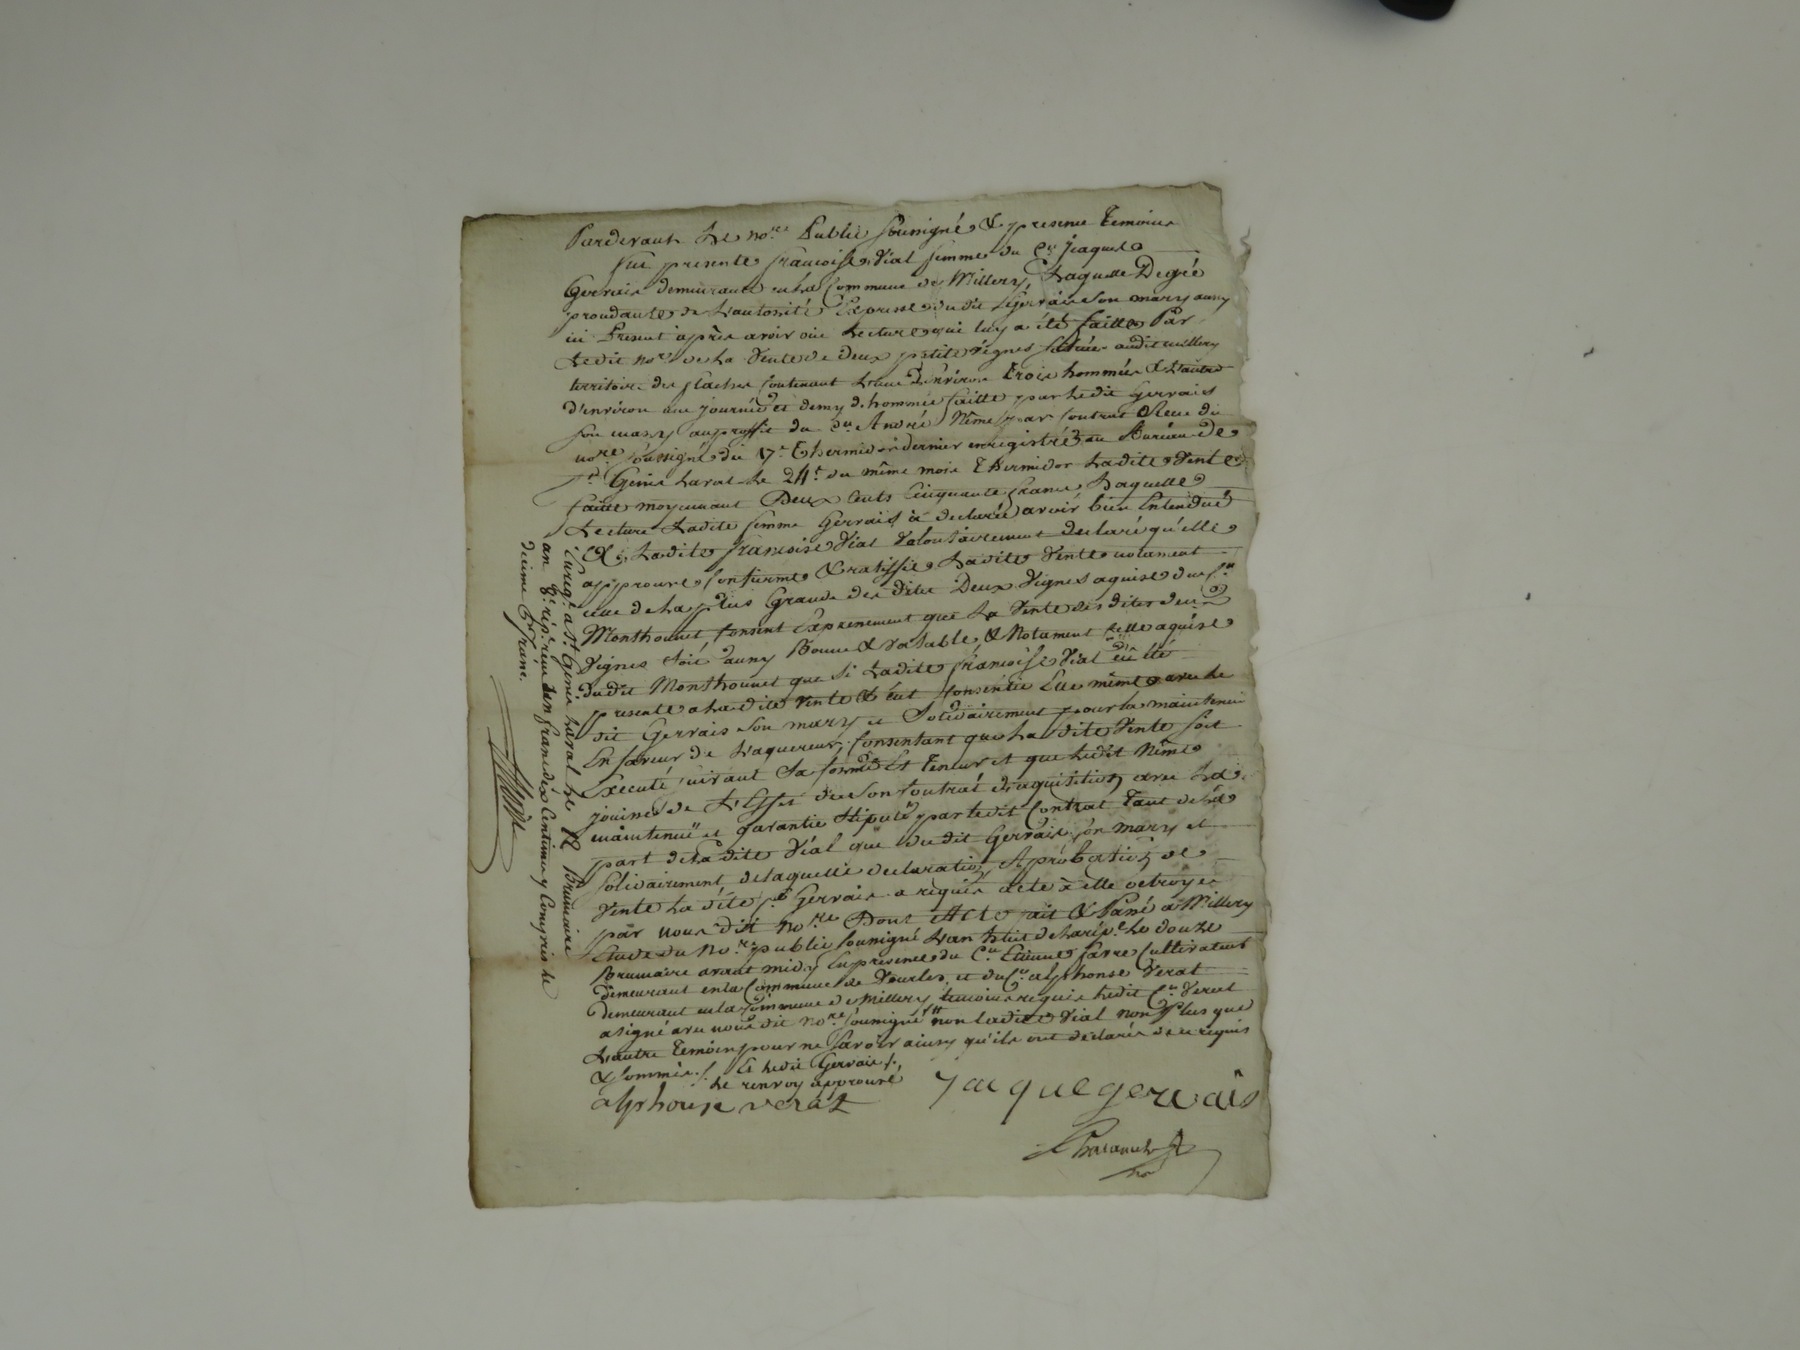 Pardevant Le no.re Public soussigné & presence Temoins
fut presente francoise Vial femme du C.en Jiaque
Gervais demeurante en la Commune de Millery, Laquelle Degré
proudante de L'autorité Expresse du dit Gervais son mary aussy
ici Present après avoir oüie Lecture qui luy a été faitte Par
Ledit no.re de La Vente de deux petite Vignes scituées audit millery
territoire des flaches Contenant L'une D'environ trois hommées & L'autre
d'environ une journée et demy d'hommée faitte par Ledit Gervais
son mary auproffit du C.en André Nême par Contrat Receu du
no.re soussigné du 17.e Thermidor dernier enregistré au Bureau de
S.t Genis Laval Le 24.e du même mois Thermidor Ladite Vente
faitte moyennant Deux Cents Cinquante francs Laquelle
Lecture Ladite femme Gervais à declarée avoir bien Entendue
& Ladite francoise Vial Valontairement declaré qu'elle
approuve Confirme & ratiffie Ladite Vente notament
celle de La plus Grande des dites Deux Vignes aquise du C.en
Monthounet, Consent Expressement que La Vente des dites deux
Vignes soit aussy Bonne & Valable, & Notament celle aquise
dudit Monthounet que si Ladite francoise Vial eût été
presente a Ladite Vente & eut Consentie Elle même avec Le
dit Gervais son mary et Solidairement pour la maintenir
En faveur de L'aquereur, Consentant que La dite Vente soit
Executé suivant Sa forme & Teneur et que Ledit Nême
jouisse de L'Effet de son Contrat d'aquisition avec La
maintenuë et garantie stipulé par Ledit Contrat Tant de la
part de La dite Vial que du dit Gervais son mary et
Solidairement, de laquelle declaration, Approbation de
Vente La dite f.e Gervais a requis acte à elle octroyée
par nous dit no.re Dont Acte fait & Passé a Millery
Etude du No.re public soussigné L'an huit de la rép.e Le douze
Brumaire avant midy En presence du C.en Etienne favre Cultivateur
demeurant en la Commune de Vourles, et du C.en alphonse Verat
demeurant en la Commune de Millery temoins requis Ledit C.en Verat
a signé avec nous dit no.re soussigné non ladite Vial non Plus que
L'autre temoin pour ne Savoir ainsy qu'ils ont declarés de ce requis
& sommés ./. Et Ledit Gervais ./.
Le renvoy approuvé
alphonse verat
Jacque gervais
Enreg.é a S.t Genis Laval Le 12 Brumaire
an 8.e rép. reçu un franc dix Centimes y Compris le
decime Er franc.